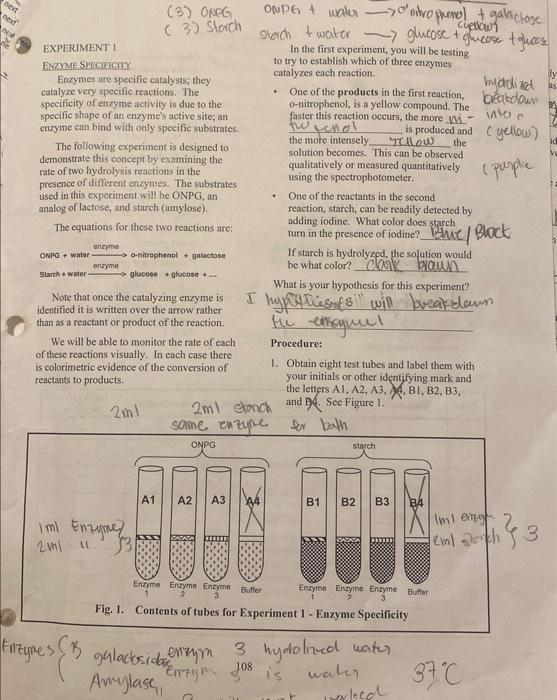 next
next
next
(3) ONPG ONPG + water → o'nitrophenol + galactose
(yellow)
(3) Starch starch + water → glucose + glucose + glucose
EXPERIMENT 1
ENZYME SPECIFICITY
Enzymes are specific catalysts; they
catalyze very specific reactions. The
specificity of enzyme activity is due to the
specific shape of an enzyme's active site; an
enzyme can bind with only specific substrates.
The following experiment is designed to
demonstrate this concept by examining the
rate of two hydrolysis reactions in the
presence of different enzymes. The substrates
used in this experiment will be ONPG, an
analog of lactose, and starch (amylose).
The equations for these two reactions are:
enzyme
ONPG + water → o-nitrophenol + galactose
enzyme
Starch + water → glucose + glucose + ....
Note that once the catalyzing enzyme is
identified it is written over the arrow rather
than as a reactant or product of the reaction.
We will be able to monitor the rate of each
of these reactions visually. In each case there
is colorimetric evidence of the conversion of
reactants to products.
In the first experiment, you will be testing
to try to establish which of three enzymes
catalyzes each reaction.
• One of the products in the first reaction,
o-nitrophenol, is a yellow compound. The
faster this reaction occurs, the more ni-
is produced and
the more intensely yellow the
solution becomes. This can be observed
qualitatively or measured quantitatively
using the spectrophotometer.
breakdown
into
(yellow)
(purple
• One of the reactants in the second
reaction, starch, can be readily detected by
adding iodine. What color does starch
turn in the presence of iodine? Blue/Black
If starch is hydrolyzed, the solution would
be what color? dark brown
What is your hypothesis for this experiment?
I will breakdown
the
Procedure:
1. Obtain eight test tubes and label them with
your initials or other identifying mark and
the letters A1, A2, A3, A4, B1, B2, B3,
and B4. See Figure 1.
2ml 2ml starch
same enzyme for both
ONPG starch
A1 A2 A3 A4 B1 B2 B3 B4
1ml Enzyme
2ml " } 3
1ml enzym
2ml starch } 3
Enzyme 1 Enzyme 2 Enzyme 3 Buffer Enzyme 1 Enzyme 2 Enzyme 3 Buffer
Fig. 1. Contents of tubes for Experiment 1 - Enzyme Specificity
Enzymes { B galactosidase enzym 3 hydolized water
108
Amylase enzym is water 37°C